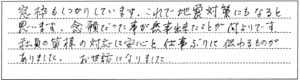 窓枠もしっかりしています。これで地震対策にもなると
思います。念願だった事が無事出来たことが何よりです。
社員の皆様の対応に安心と仕事ぶりに伝わるものが
ありました。お世話になりました